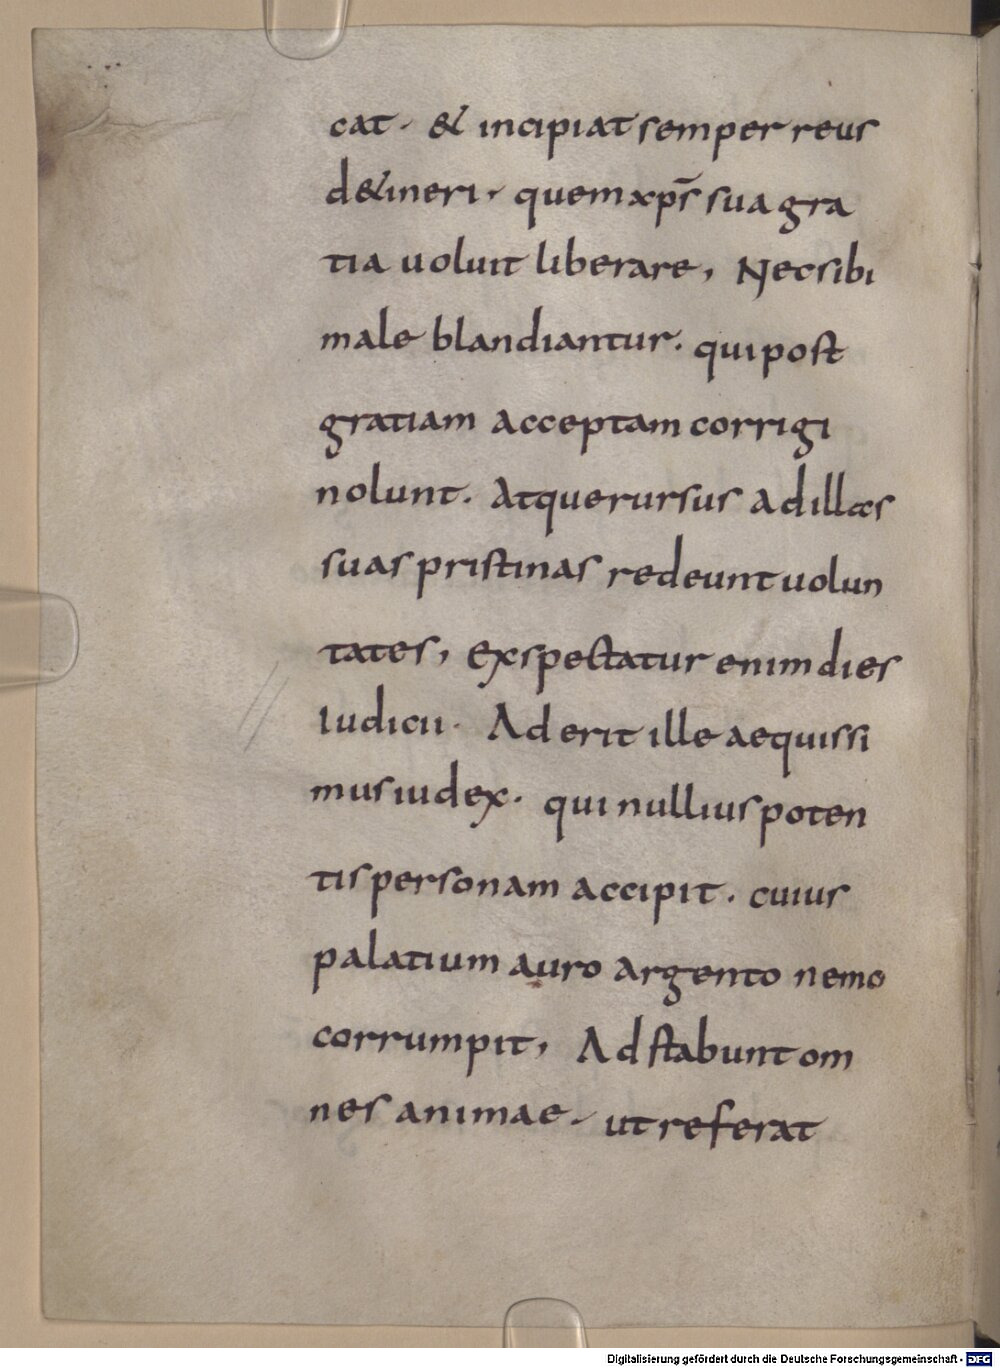 cat · & incipiat semper reus
d&ineri · quem xp̄s sua gra
tia uoluit liberare, Nec sibi
male blandiantur · qui post
gratiam acceptam corrigi
nolunt · Atque rursus ad illas
suas pristinas redeunt uolun
tates, Exspectatur enim dies
Iudicii · Aderit ille aequissi
mus iudex · qui nullius poten
tis personam accipit · cuius
palatium auro argento nemo
corrumpit, Adstabunt om
nes animae · ut referat
Digitalisierung gefördert durch die Deutsche Forschungsgemeinschaft - DFG